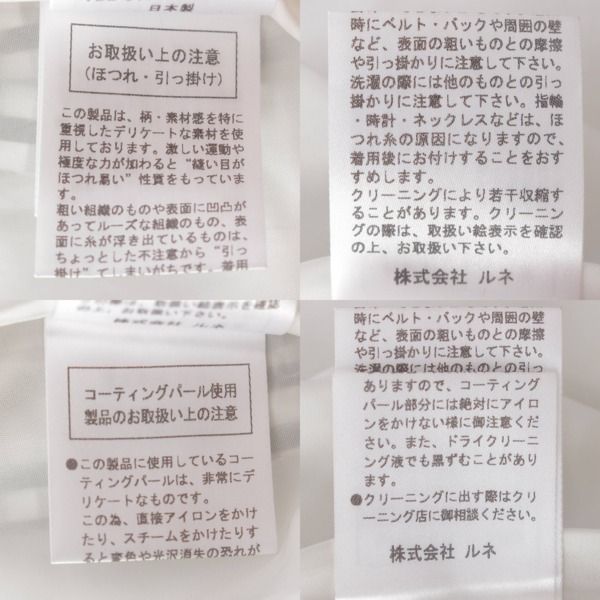 日本製
お取扱い上の注意
(ほつれ・引っ掛け)
この製品は、柄・素材感を特に
重視したデリケートな素材を使
用しております。激しい運動や
極度な力が加わると“縫い目が
ほつれ易い”性質をもっていま
す。
粗い組織のものや表面に凹凸が
あってルーズな組織のもの、表
面に糸が浮き出ているものは、
ちょっとした不注意から“引っ
掛け”てしまいがちです。着用
時にベルト・バックや周囲の壁
など、表面の粗いものとの摩擦
や引っ掛かりに注意して下さい。
洗濯の際には他のものとの引っ
掛かりに注意して下さい。指輪
・時計・ネックレスなどは、ほ
つれ糸の原因になりますので、
着用後にお付けすることをおす
すめします。
クリーニングにより若干収縮す
ることがあります。クリーニン
グの際は、取扱い絵表示を確認
の上、お取扱い下さい。
株式会社 ルネ
の上、お取扱い下さい。
株式会社 ルネ
コーティングパール使用
製品のお取扱い上の注意
●この製品に使用しているコー
ティングパールは、非常にデ
リケートなものです。
この為、直接アイロンをかけ
たり、スチームをかけたりす
ると変色や光沢消失の恐れが
時にベルト・バックや周囲の壁
など、表面の粗いものとの摩擦
や引っ掛かりに注意して下さい。
洗濯の際には他のものとの引っ
ありますので、コーティング
パール部分には絶対にアイロ
ンをかけない様に御注意くだ
さい。また、ドライクリーニ
ング液でも黒ずむことがあり
ます。
●クリーニングに出す際はクリ
ーニング店に御相談ください。
株式会社 ルネ